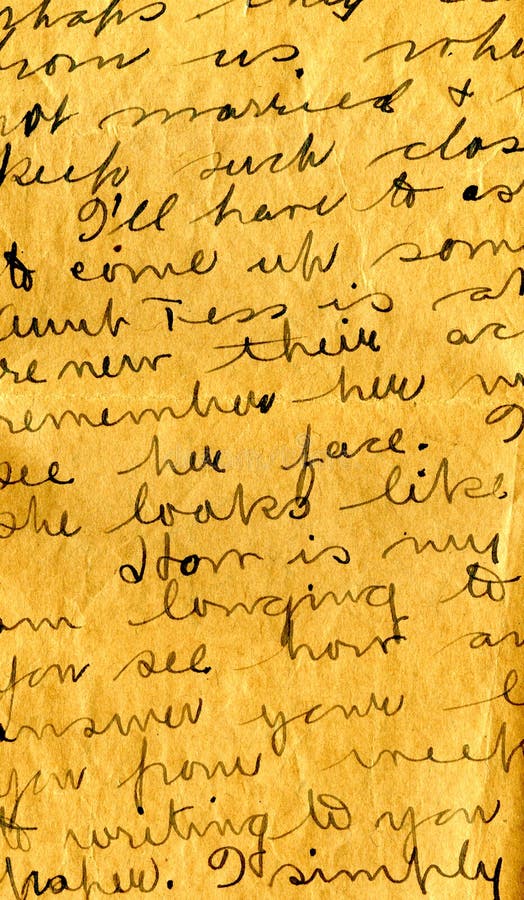 rhaps they
from us who
not married &
keep such clos
I'll have to as
to come up som
aunt Tess is at
renew their ac
remember her
see her face. I
she looks like
How is my
am longing to
you see how an
answer your l
you from week
to writing to you
paper. I simply